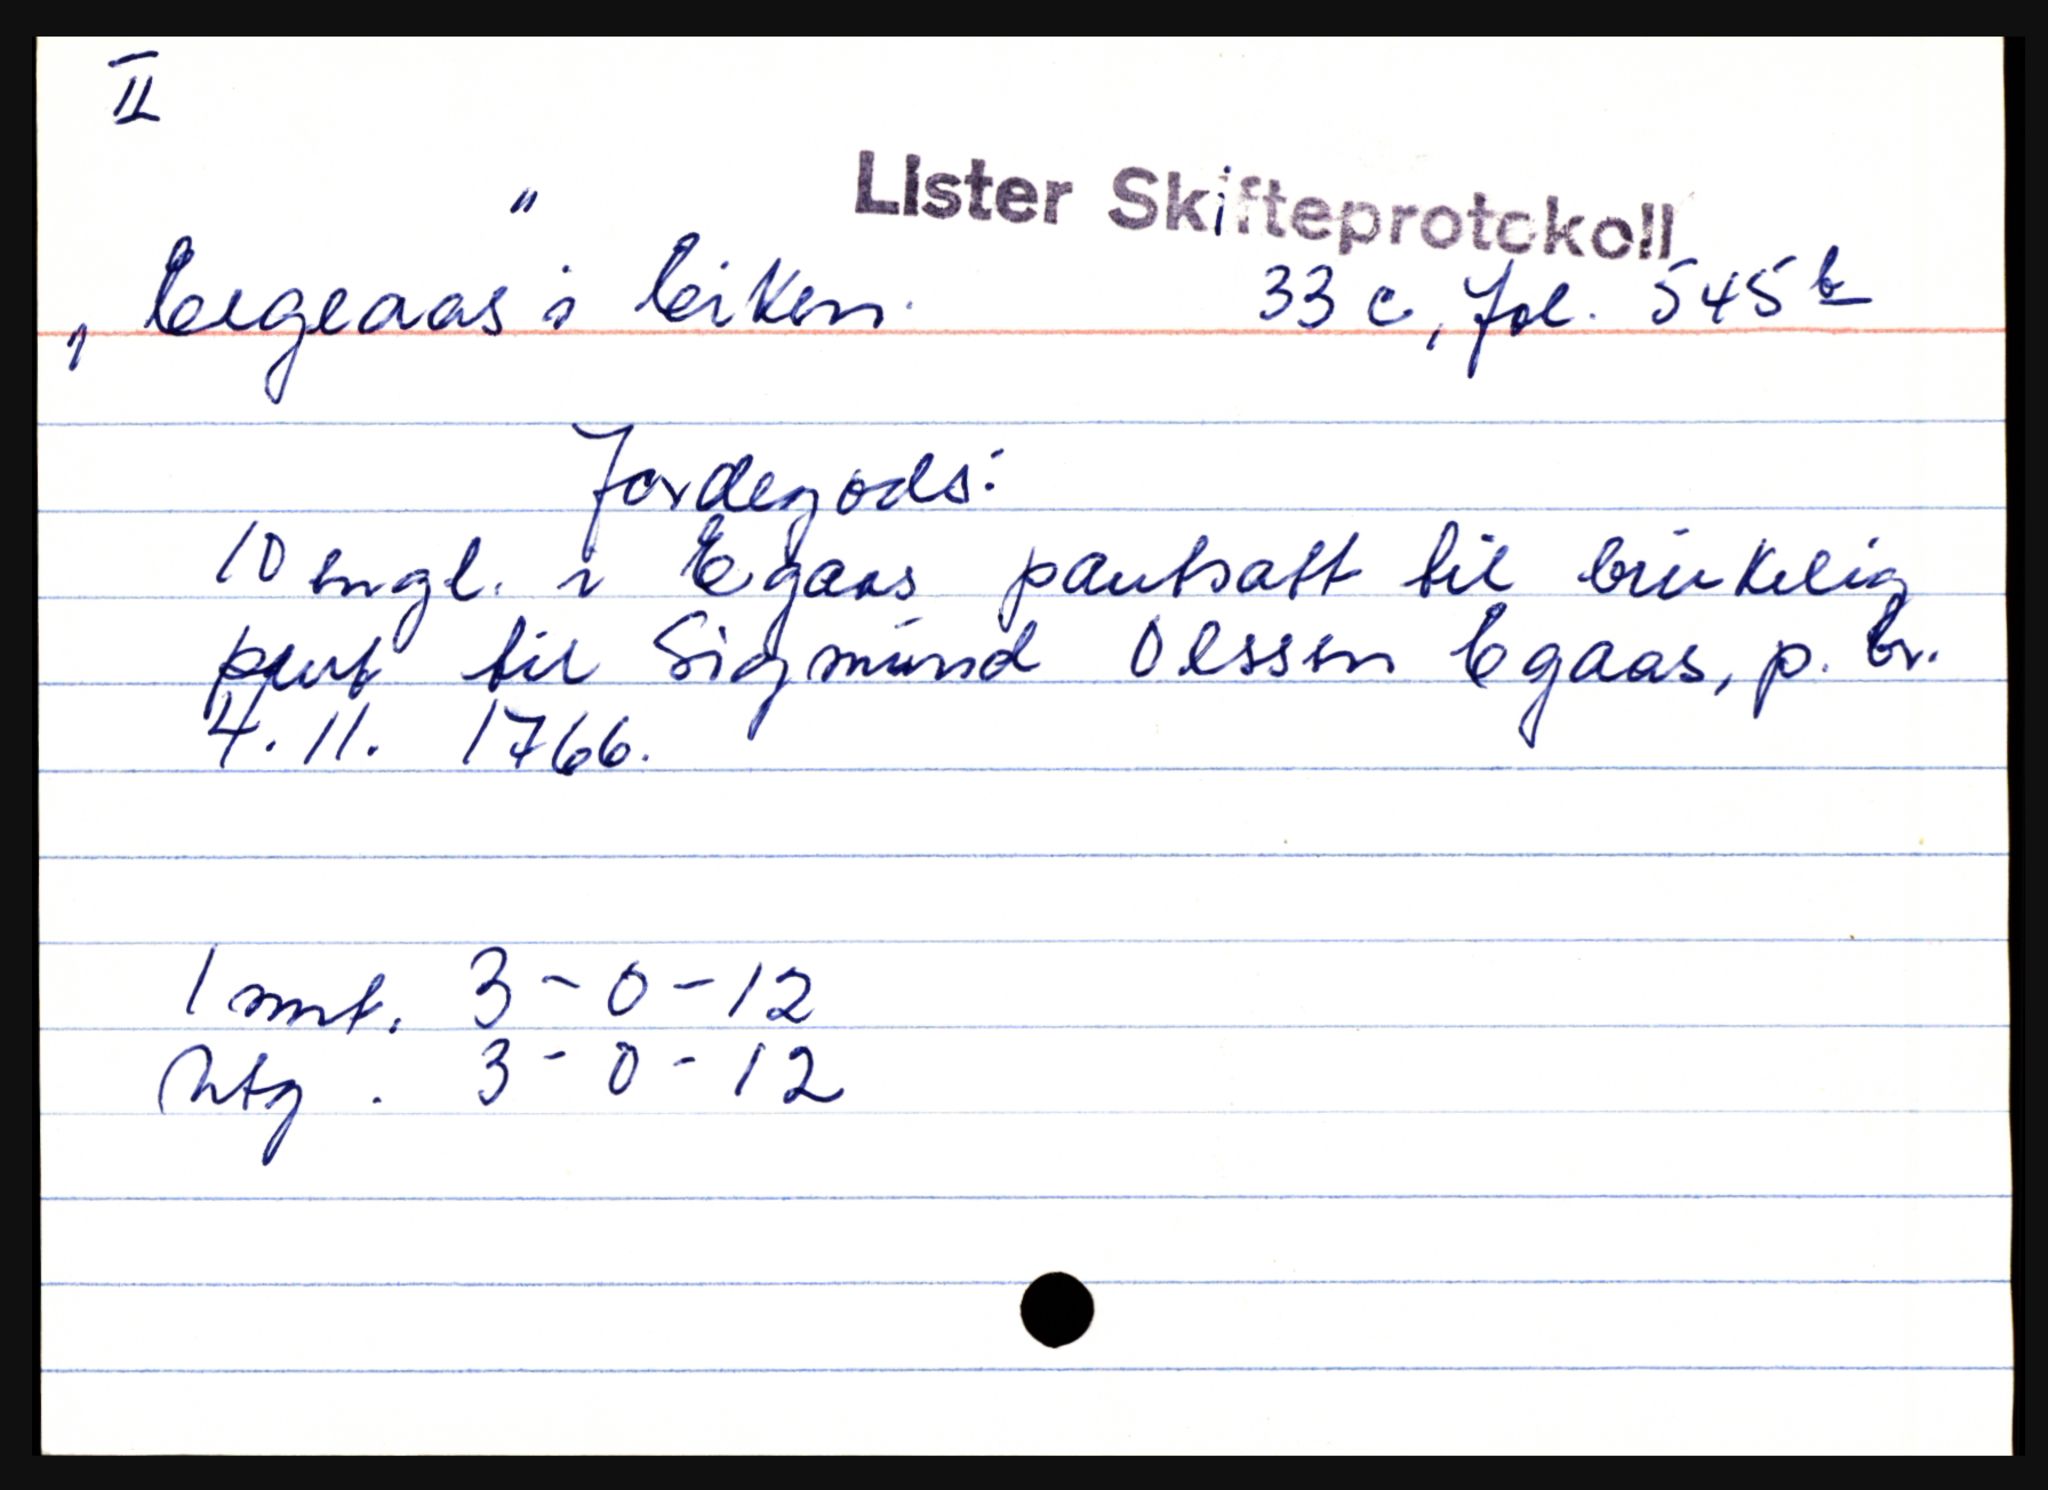 II
Lister Skifteprotokoll
„Eegeaas" i Eiken. 33 c, fol. 545 b
Jordegods:
10 engl. i Egaas pantsatt til brúkelig
pant til Sigmúnd Olssen Egaas, p. br.
4. 11. 1766.
Innt. 3 - 0 - 12
Utg. 3 - 0 - 12